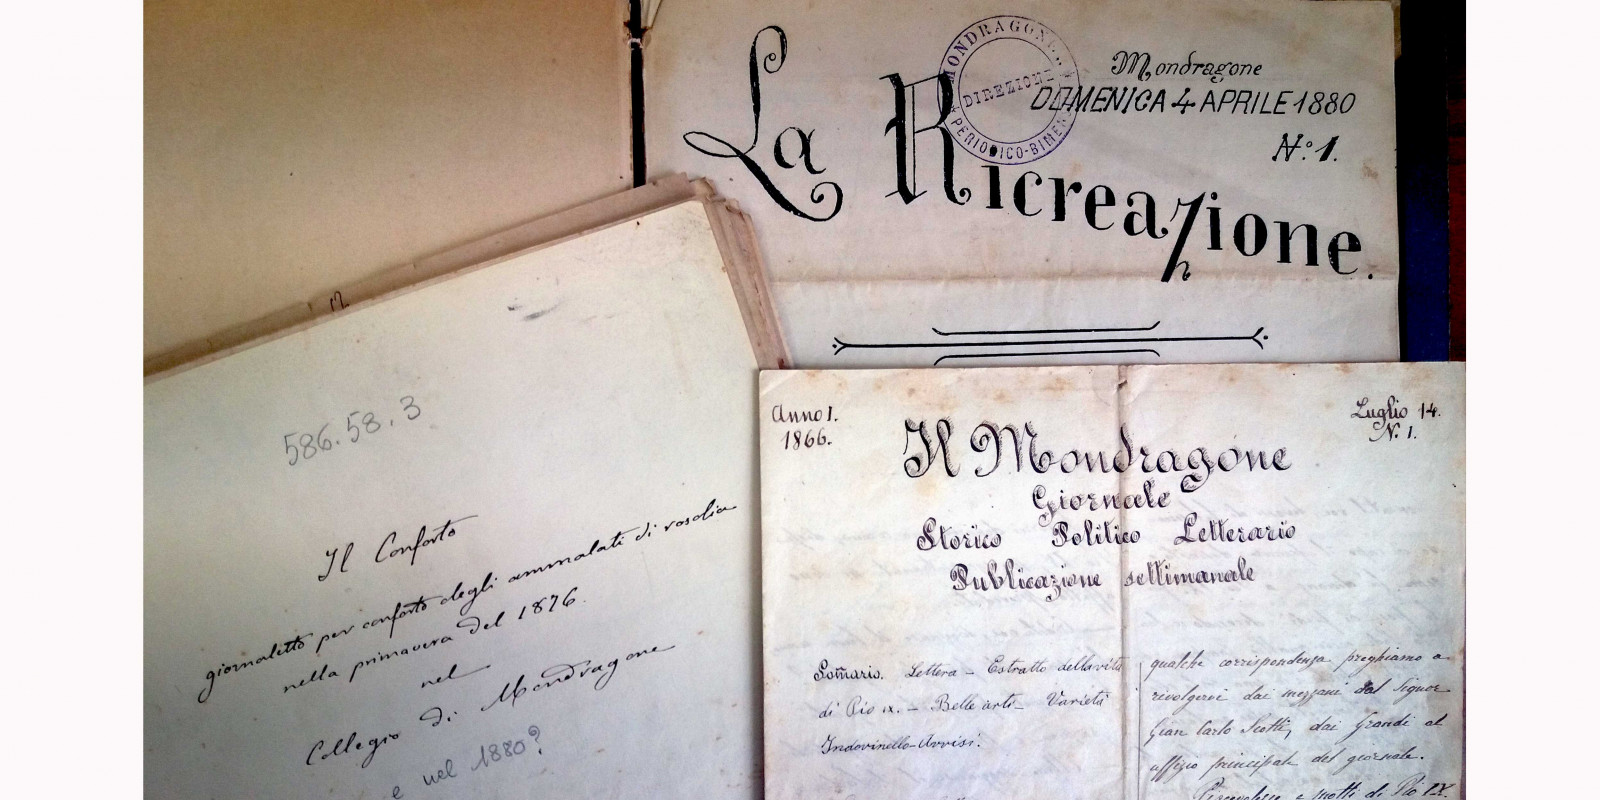 La Ricreazione.
MONDRAGONE
DIREZIONE
PERIODICO-BIMEN
Mondragone
DOMENICA 4 APRILE 1880
N.º 1.
12
586.58.3
Il Conforto
giornaletto per conforto degli ammalati di rosolia
nella primavera del 1876
nel
Collegio di Mondragone
e nel 1880?
Anno 1.
1866.
Luglio 14.
N. 1.
Il Mondragone
Giornale
Storico Politico Letterario
Publicazione settimanale
Somario. Lettera – Estratto della vita
di Pio IX. – Belle arti – Varietà
Indovinello – Avvisi.
qualche corrispondenza preghiamo a
rivolgersi dai mezzani dal Signor
Gian Carlo Scotti, dai Grandi al
uffizio principale del giornale.
e motti di Pio IX.